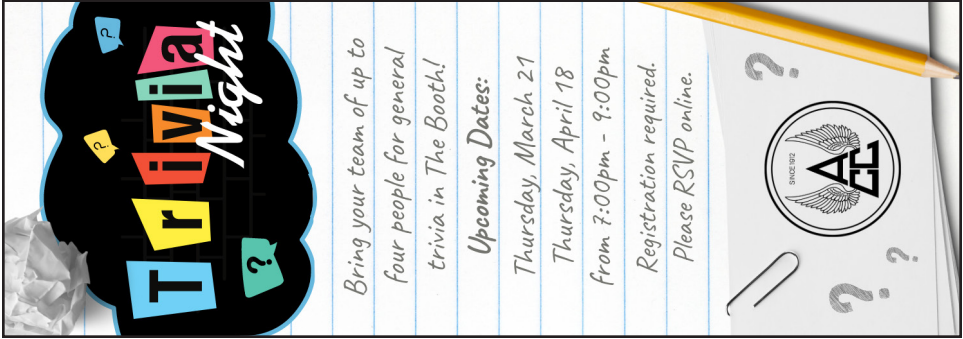 Trivia
Night
?
?
?
Bring your team of up to
four people for general
trivia in The Booth!
Upcoming Dates:
Thursday, March 21
Thursday, April 18
from 7:00pm - 9:00pm
Registration required.
Please RSVP online.
?
SINCE 1912
ACC
?
?